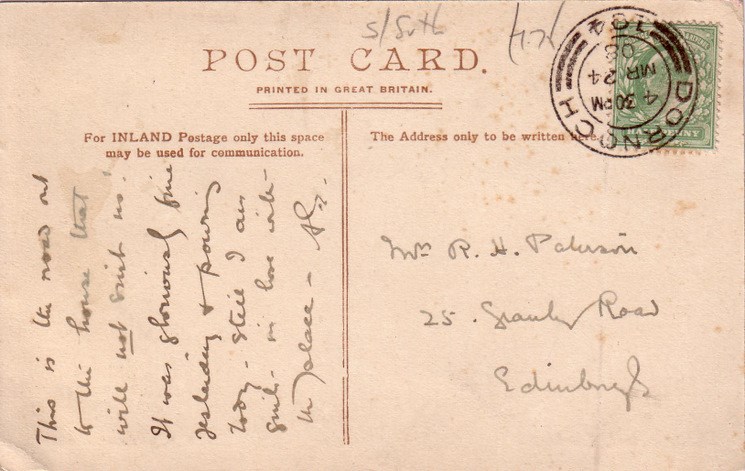 S/Suth
POST CARD.
PRINTED IN GREAT BRITAIN.
For INLAND Postage only this space
may be used for communication.
The Address only to be written here.
DORNOCH
4 30 PM
MR 24
08
184
HALFPENNY
This is the road out
to the house that
will not suit us!
It was gloriously fine
yesterday & pouring
today - still I am
quite in love with
the place -
Mrs R. H. Paterson
25. Granby Road
Edinburgh